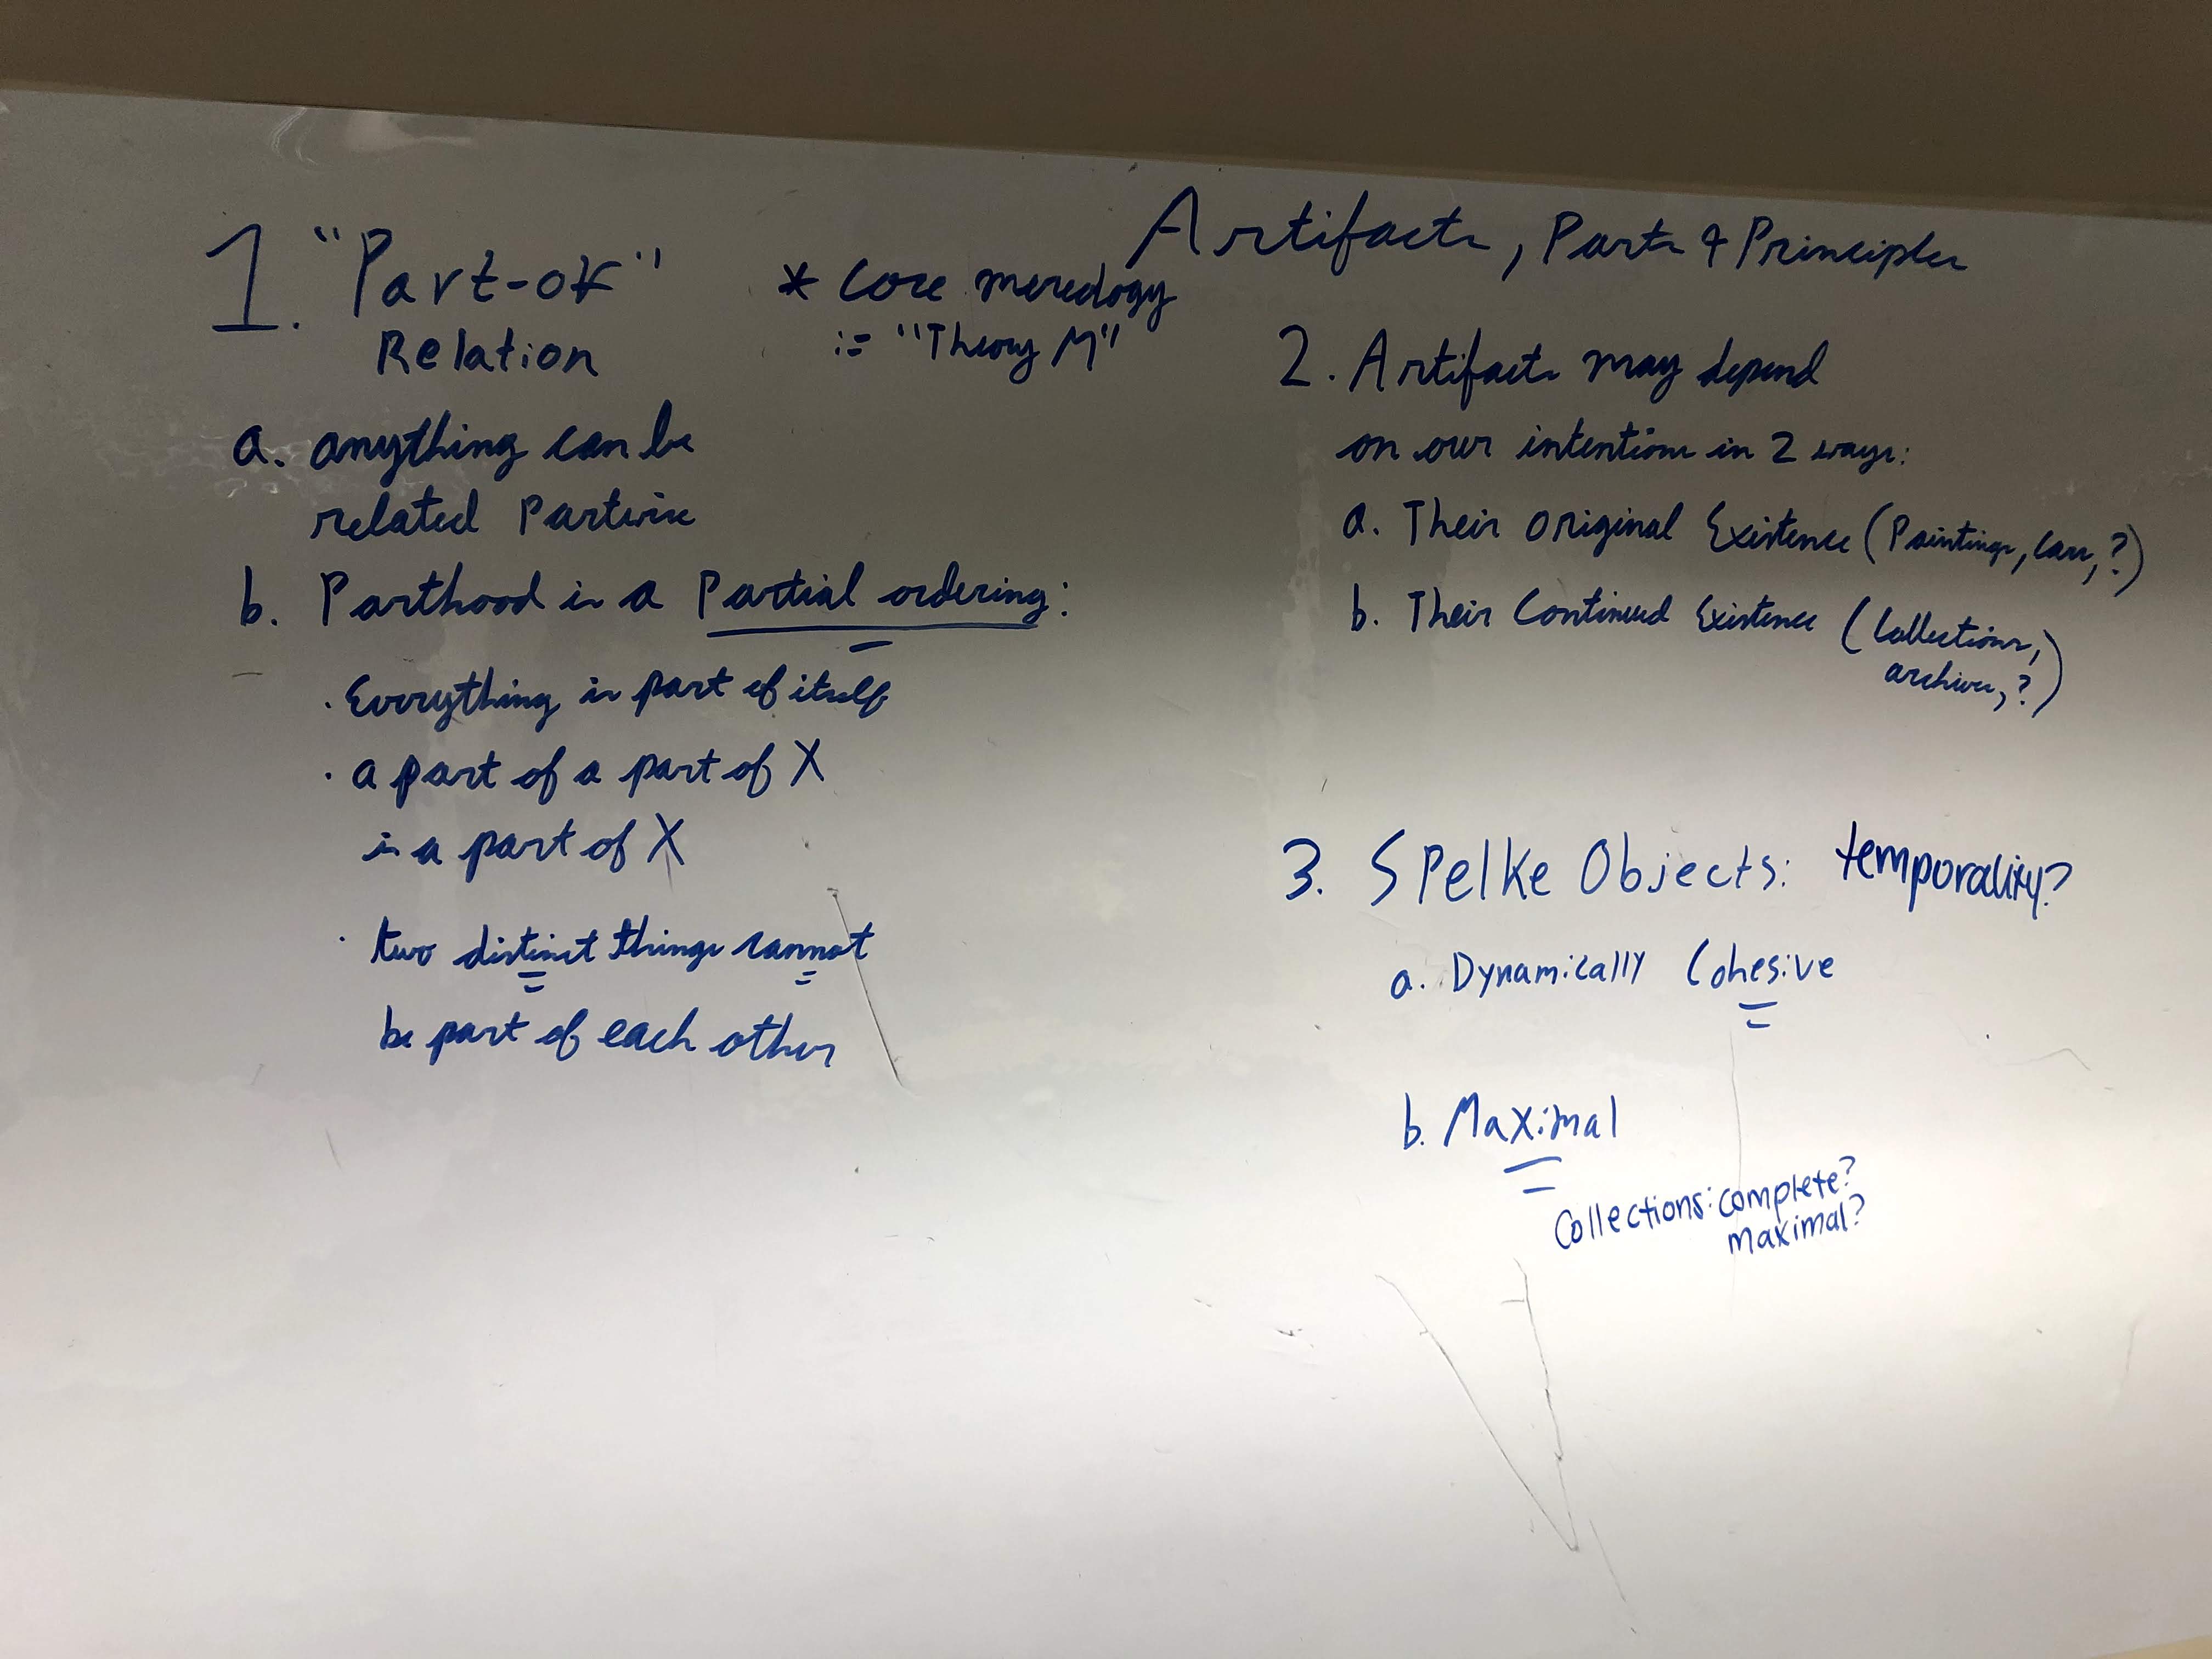 Artifacts, Parts & Principles
1. "Part-of"
Relation
* Core meredogy
:= "Theory M"
a. anything can be
related Partwise
b. Parthood is a Partial ordering:
· Everything is part of itself
· a part of a part of X
is a part of X
· two distinct things cannot
be part of each other
2. Artifacts may depend
on our intentions in 2 ways:
a. Their original Existence (Paintings, cars, ?)
b. Their Continued Existence (Collections,
archives, ?)
3. Spelke Objects: temporality?
a. Dynamically Cohesive
b. Maximal
Collections: complete?
maximal?